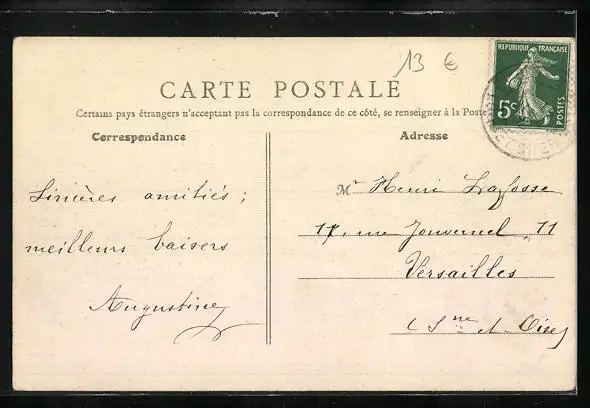 13 €
REPUBLIQUE FRANÇAISE
5c
POSTES
CARTE POSTALE
Certains pays étrangers n'acceptant pas la correspondance de ce côté, se renseigner à la Poste
Correspondance
Adresse
Sincères amitiés ;
meilleurs baisers
Augustine
Mr Henri Lafosse
17, rue Jouvencel, 11
Versailles
(Sne & Oise)